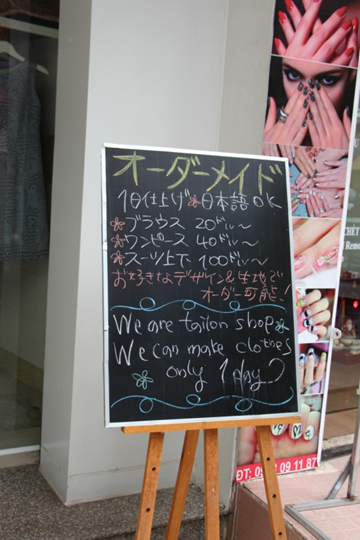 オーダーメイド
1日仕上げ 日本語OK
ブラウス 20ドル～
ワンピース 40ドル～
スーツ上下 100ドル～
お好きなデザイン&生地で
オーダー可能!
We are tailon shop
We can make clothes
only 1 day
ĐT: 09 09 11 87